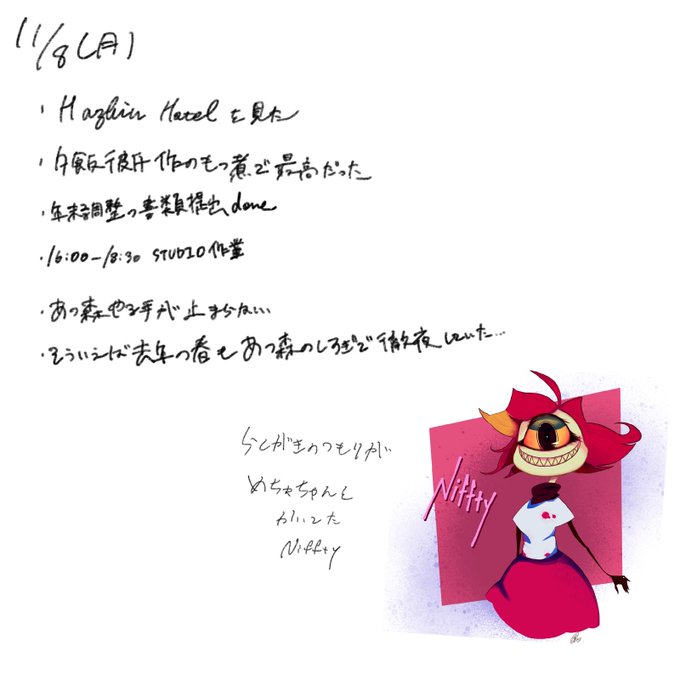 11/8(月)
・Hazbin Hotelを見た
・夕飯彼氏作のもつ煮で最高だった
・年末調整の書類提出done
・16:00-18:30 STUDIO作業
・あつ森やる手が止まらない
・そういえば去年の春もあつ森のしすぎで徹夜していた…
らくがきのつもりが
めちゃちゃんと
かいてた
Niffty
Niffty